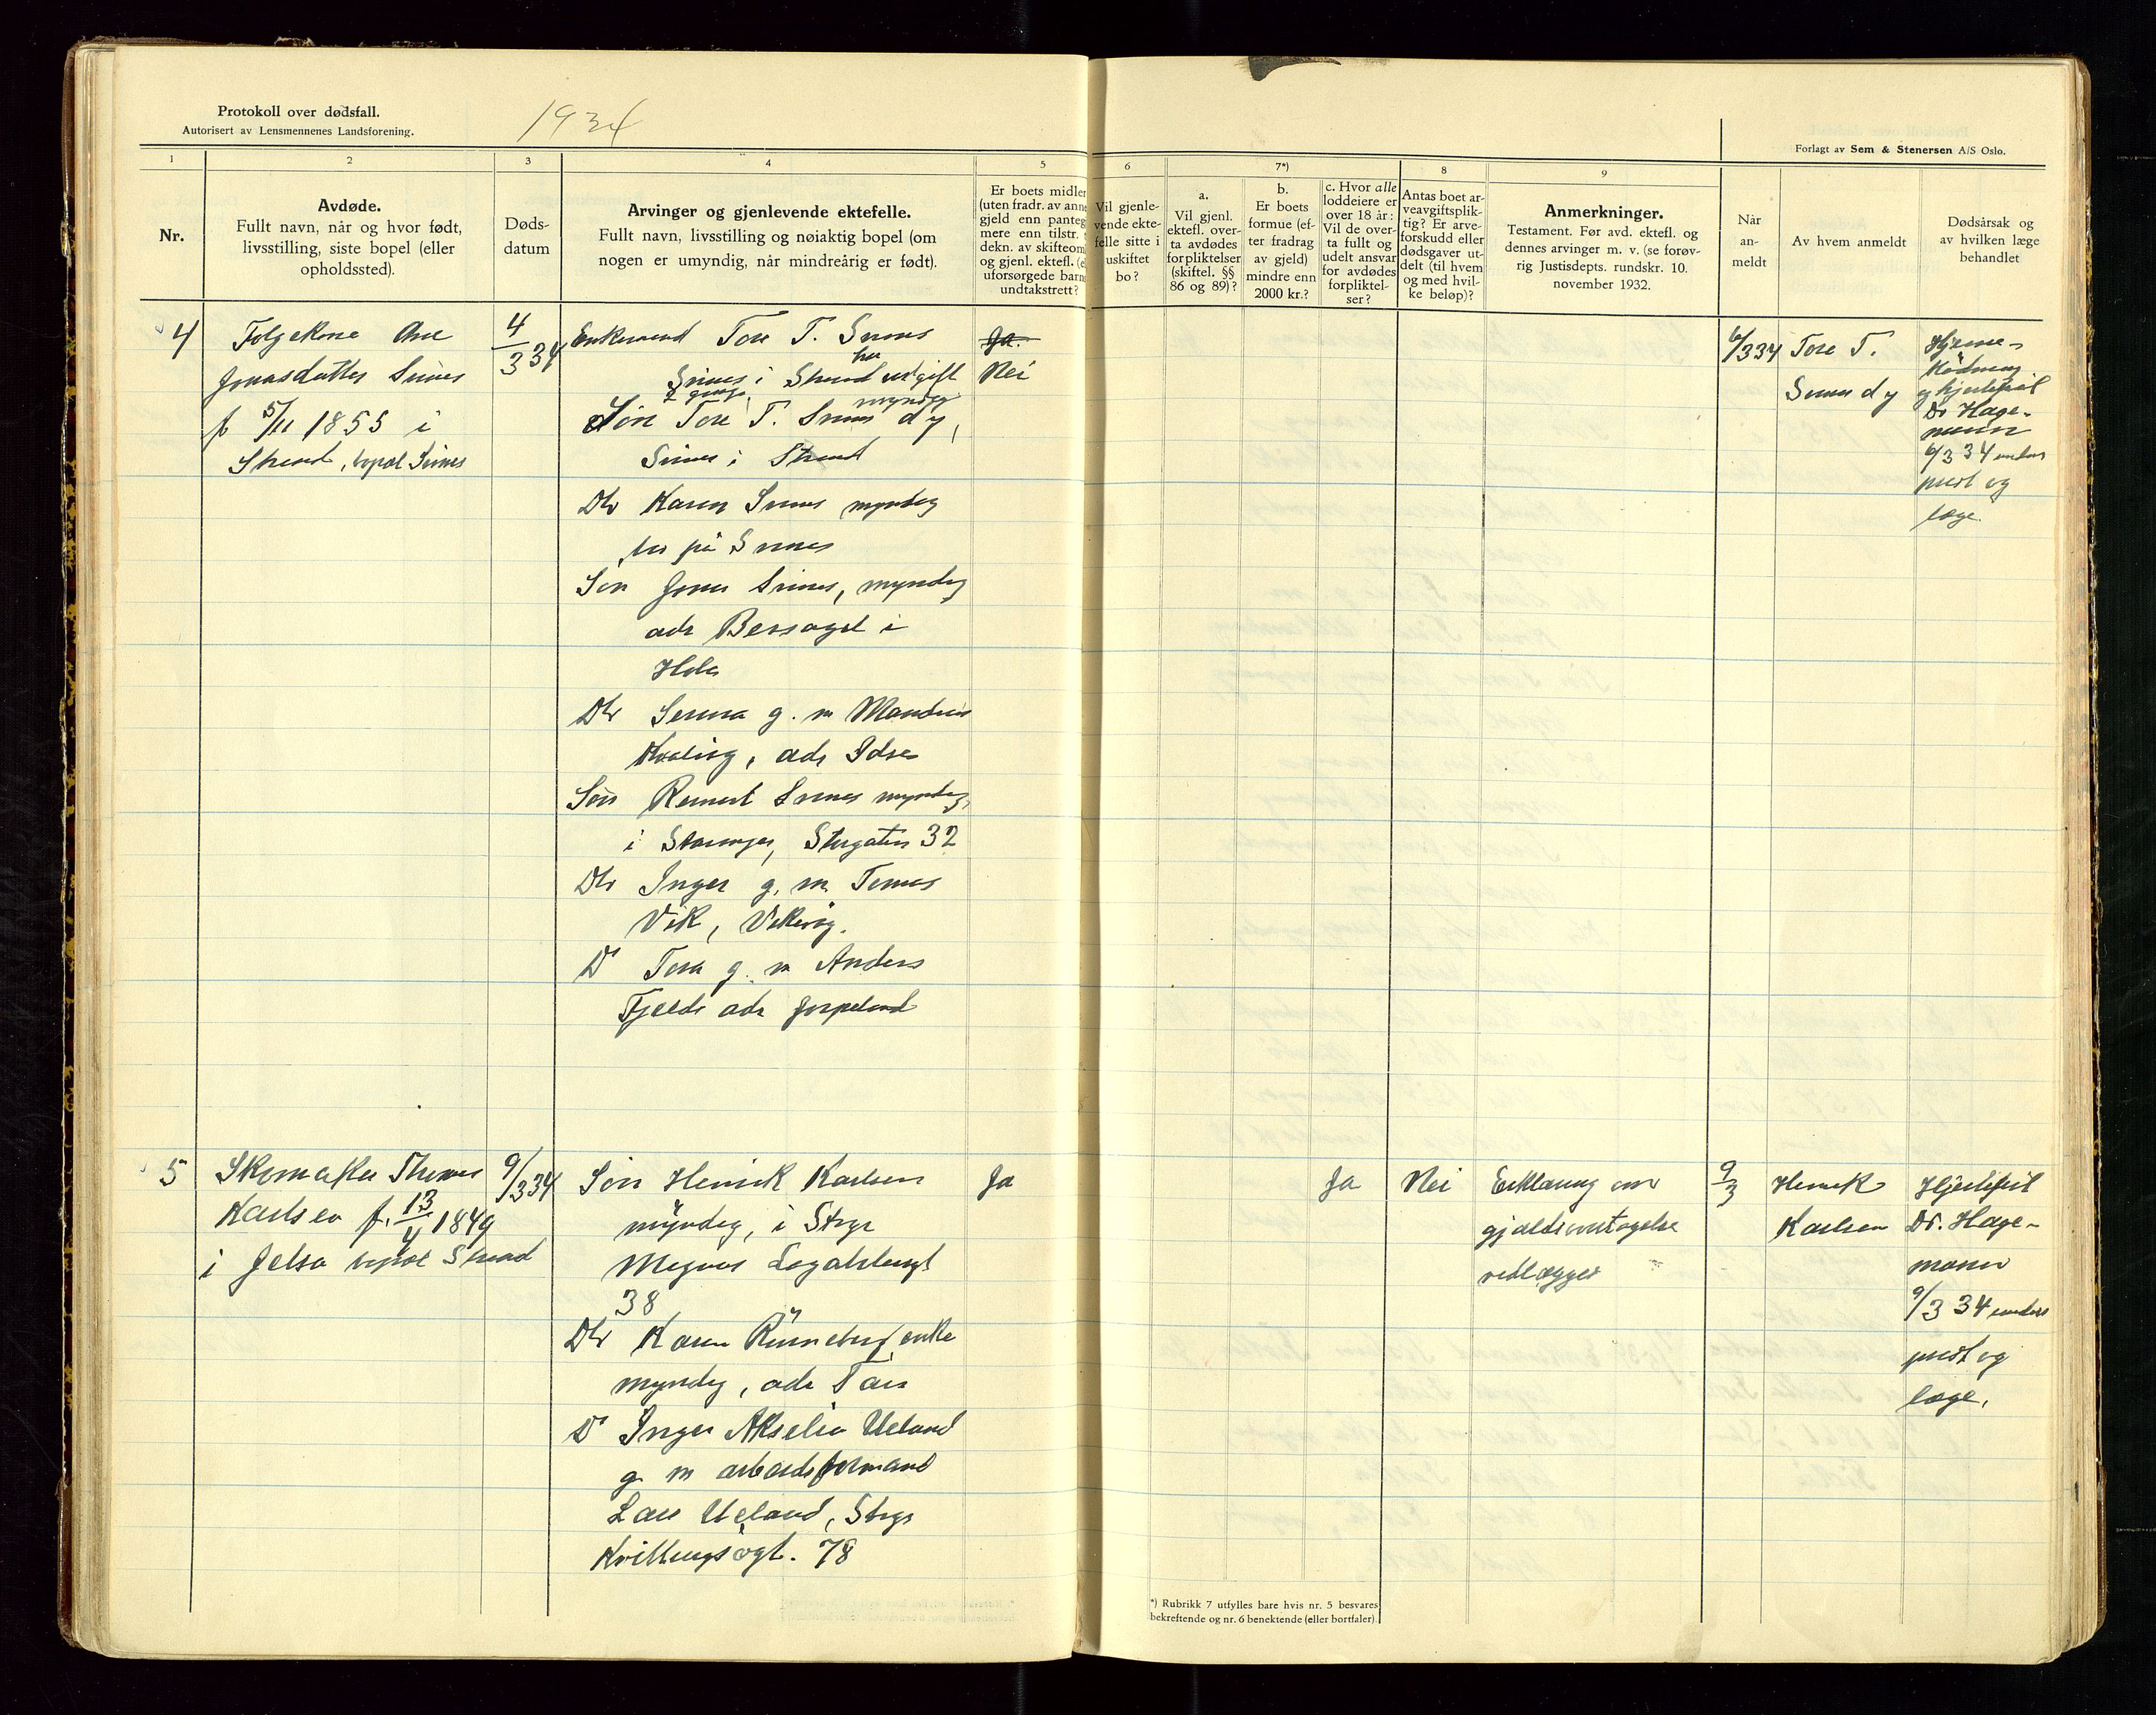 Protokoll over dødsfall.
Autorisert av Lensmennenes Landsforening.
1934
Forlagt av Sem & Stenersen A/S Oslo.
1
2
3
4
5
6
7*)
8
9
Nr.
Avdøde.
Fullt navn, når og hvor født,
livsstilling, siste bopel (eller
opholdssted).
Døds-
datum
Arvinger og gjenlevende ektefelle.
Fullt navn, livsstilling og nøiaktig bopel (om
nogen er umyndig, når mindreårig er født).
Er boets midler
(uten fradr. av anne
gjeld enn panteg
mere enn tilstr.
dekn. av skifteom
og gjenl. ektefl. (e
uforsørgede barn
undtakstrett?
Vil gjenle-
vende ekte-
felle sitte i
uskiftet
bo?
a.
Vil gjenl.
ektefl. over-
ta avdødes
forpliktelser
(skiftel. §§
86 og 89)?
b.
Er boets
formue (ef-
ter fradrag
av gjeld)
mindre enn
2000 kr.?
c. Hvor alle
loddeiere er
over 18 år:
Vil de over-
ta fullt og
udelt ansvar
for avdødes
forpliktel-
ser?
Antas boet ar-
veavgiftsplik-
tig? Er arve-
forskudd eller
dødsgaver ut-
delt (til hvem
og med hvil-
ke beløp)?
Anmerkninger.
Testament. Før avd. ektefl. og
dennes arvinger m. v. (se forøv-
rig Justisdepts. rundskr. 10.
november 1932.
Når
an-
meldt
Av hvem anmeldt
Dødsårsak og
av hvilken læge
behandlet
4
Folgekone Ane
Jonasdatter Svines
f 5/11 1855 i
Strand, bopæl Svines
4/3 34
Enkemand Tore T. Svines
Svines i Strand
2 gange
Søn Tore T. Svines d y, myndig
Svines i Strand
Dtr Karen Svines myndig
bor på Svines
Søn Jonas Svines, myndig
adr Bersagel i
Hole
Dtr Serina g. m Mandrus
Kvaling, adr Idse
Søn Reinert Svines myndig,
i Stavanger, Storgaten 32
Dtr Inger g. m. Tomas
Vik, Vikevåg.
D Tora g. m Anders
Fjelde adr Jørpeland
Ja.
Nei
6/3 34
Tore T.
Svines d y
Hjerne-
blødning
og hjertefeil
Dr Hage-
mann
6/3 34 underr
prest og
læge.
5
Skomaker Thomas
Karlsen f. 13/4 1849
i Jelsa bopæl Strand
9/3 34
Søn Henrik Karlsen
myndig, i Stvgr
Magnus Lagabøtersgt
38
Dtr Karen Rønneberg, enke
myndig, adr Tau
D Inger Akselia Ueland
g m arbeidsformand
Lars Ueland, Stvgr
Kvitsøygt. 78
Ja
Ja
Nei
Erklæring om
gjældsovertagelse
vedlægges
9/3
Henrik
Karlsen
Hjertefeil
Dr. Hage-
mann
9/3 34 underr
prest og
læge.
*) Rubrikk 7 utfylles bare hvis nr. 5 besvares
bekreftende og nr. 6 benektende (eller bortfaler).